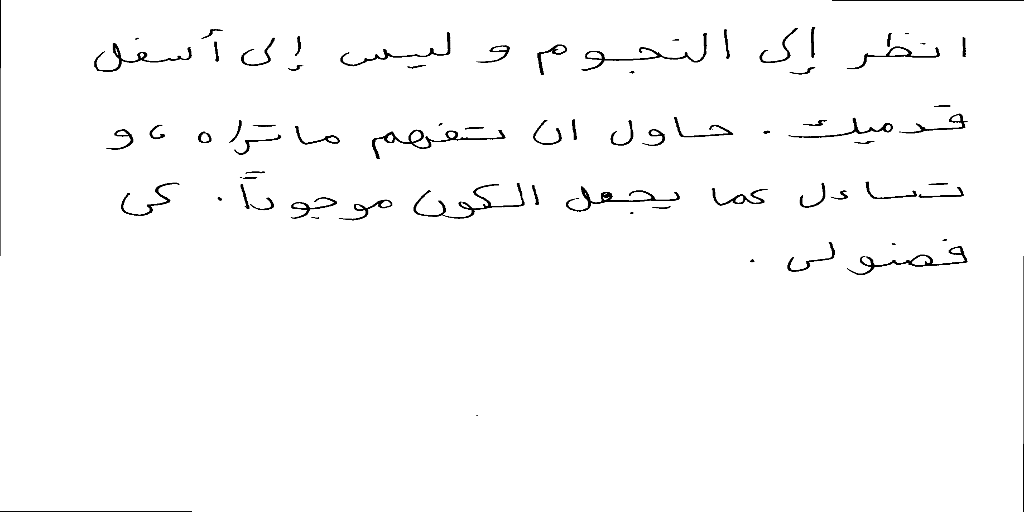 انظر إلى النجوم و ليس إلى أسفل
قدميك . حاول ان تفهم ما تراه ، و
تساءل عما يجعل الكون موجوداً . كن
فضولى .